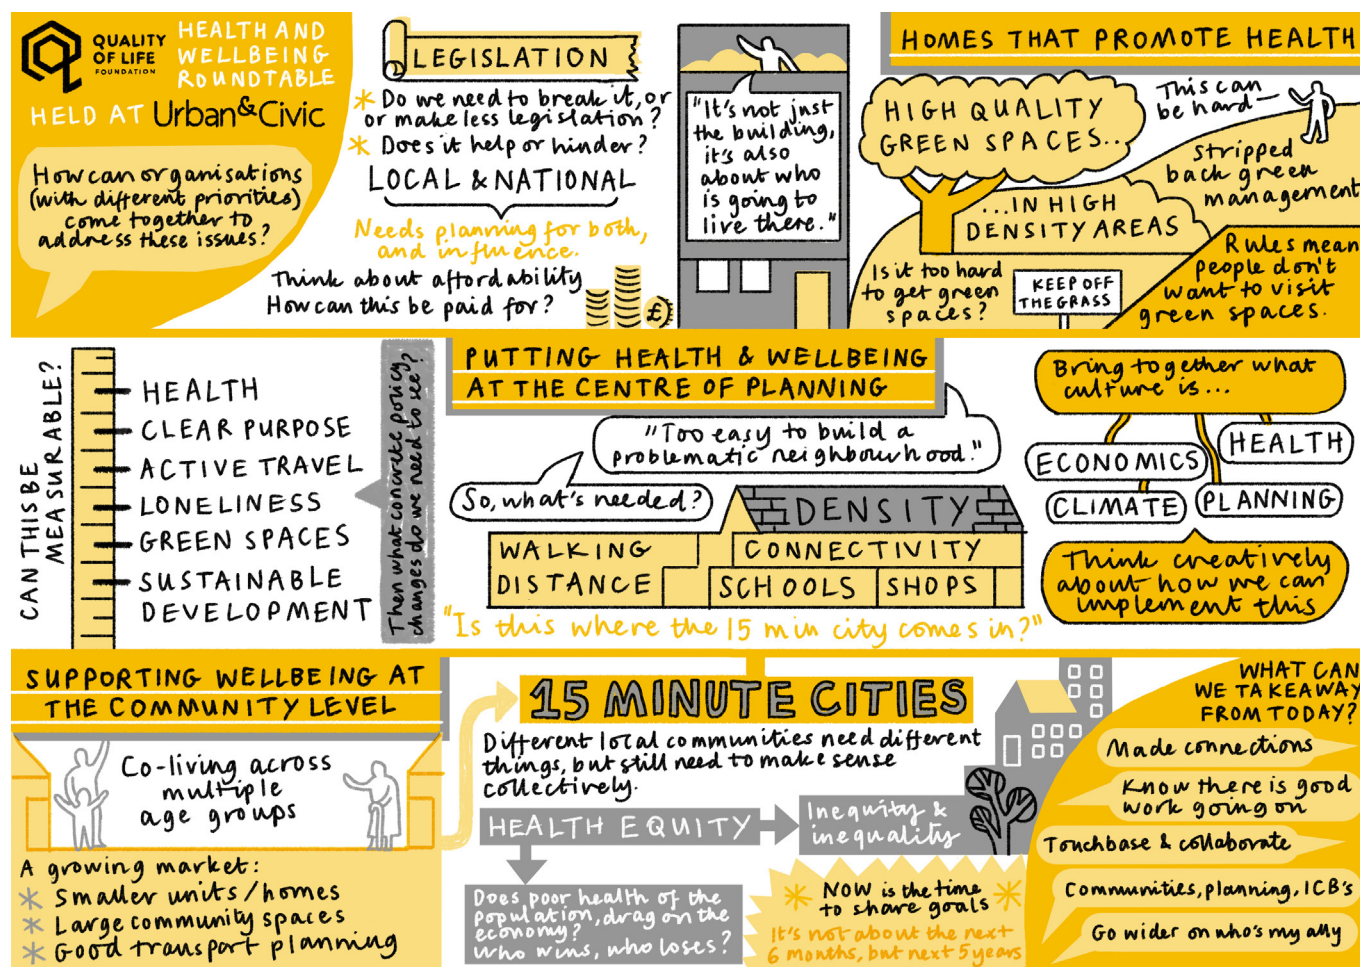 QUALITY
OF LIFE
FOUNDATION
HEALTH AND
WELLBEING
ROUNDTABLE
HELD AT Urban&Civic
How can organisations
(with different priorities)
come together to
address these issues?
LEGISLATION
* Do we need to break it, or
or make less legislation?
* Does it help or hinder?
LOCAL & NATIONAL
Needs planning for both,
and influence.
Think about affordability
How can this be paid for?
£
"It's not just
the building,
it's also
about who
is going to
live there."
HOMES THAT PROMOTE HEALTH
HIGH QUALITY
GREEN SPACES...
...IN HIGH
DENSITY AREAS
This can
be hard
Stripped
back green
management
Is it too hard
to get green
spaces?
KEEP OFF
THE GRASS
Rules mean
people don't
want to visit
green spaces.
CAN THIS BE
MEASURABLE?
HEALTH
CLEAR PURPOSE
ACTIVE TRAVEL
LONELINESS
GREEN SPACES
SUSTAINABLE
DEVELOPMENT
Then what concrete policy
changes do we need to see?
PUTTING HEALTH & WELLBEING
AT THE CENTRE OF PLANNING
"Too easy to build a
problematic neighbourhood."
So, what's needed?
DENSITY
WALKING
DISTANCE
CONNECTIVITY
SCHOOLS
SHOPS
"Is this where the 15 min city comes in?"
Bring together what
culture is...
ECONOMICS
HEALTH
CLIMATE
PLANNING
Think creatively
about how we can
implement this
SUPPORTING WELLBEING AT
THE COMMUNITY LEVEL
Co-living across
multiple
age groups
A growing market:
* Smaller units/homes
* Large community spaces
* Good transport planning
15 MINUTE CITIES
Different local communities need different
things, but still need to make sense
collectively.
HEALTH EQUITY
Inequity &
inequality
Does poor health of the
population, drag on the
economy?
Who wins, who loses?
* NOW is the time *
to share goals
It's not about the next
6 months, but next 5 years
WHAT CAN
WE TAKEAWAY
FROM TODAY?
Made connections
Know there is good
work going on
Touchbase & collaborate
Communities, planning, ICB's
Go wider on who's my ally